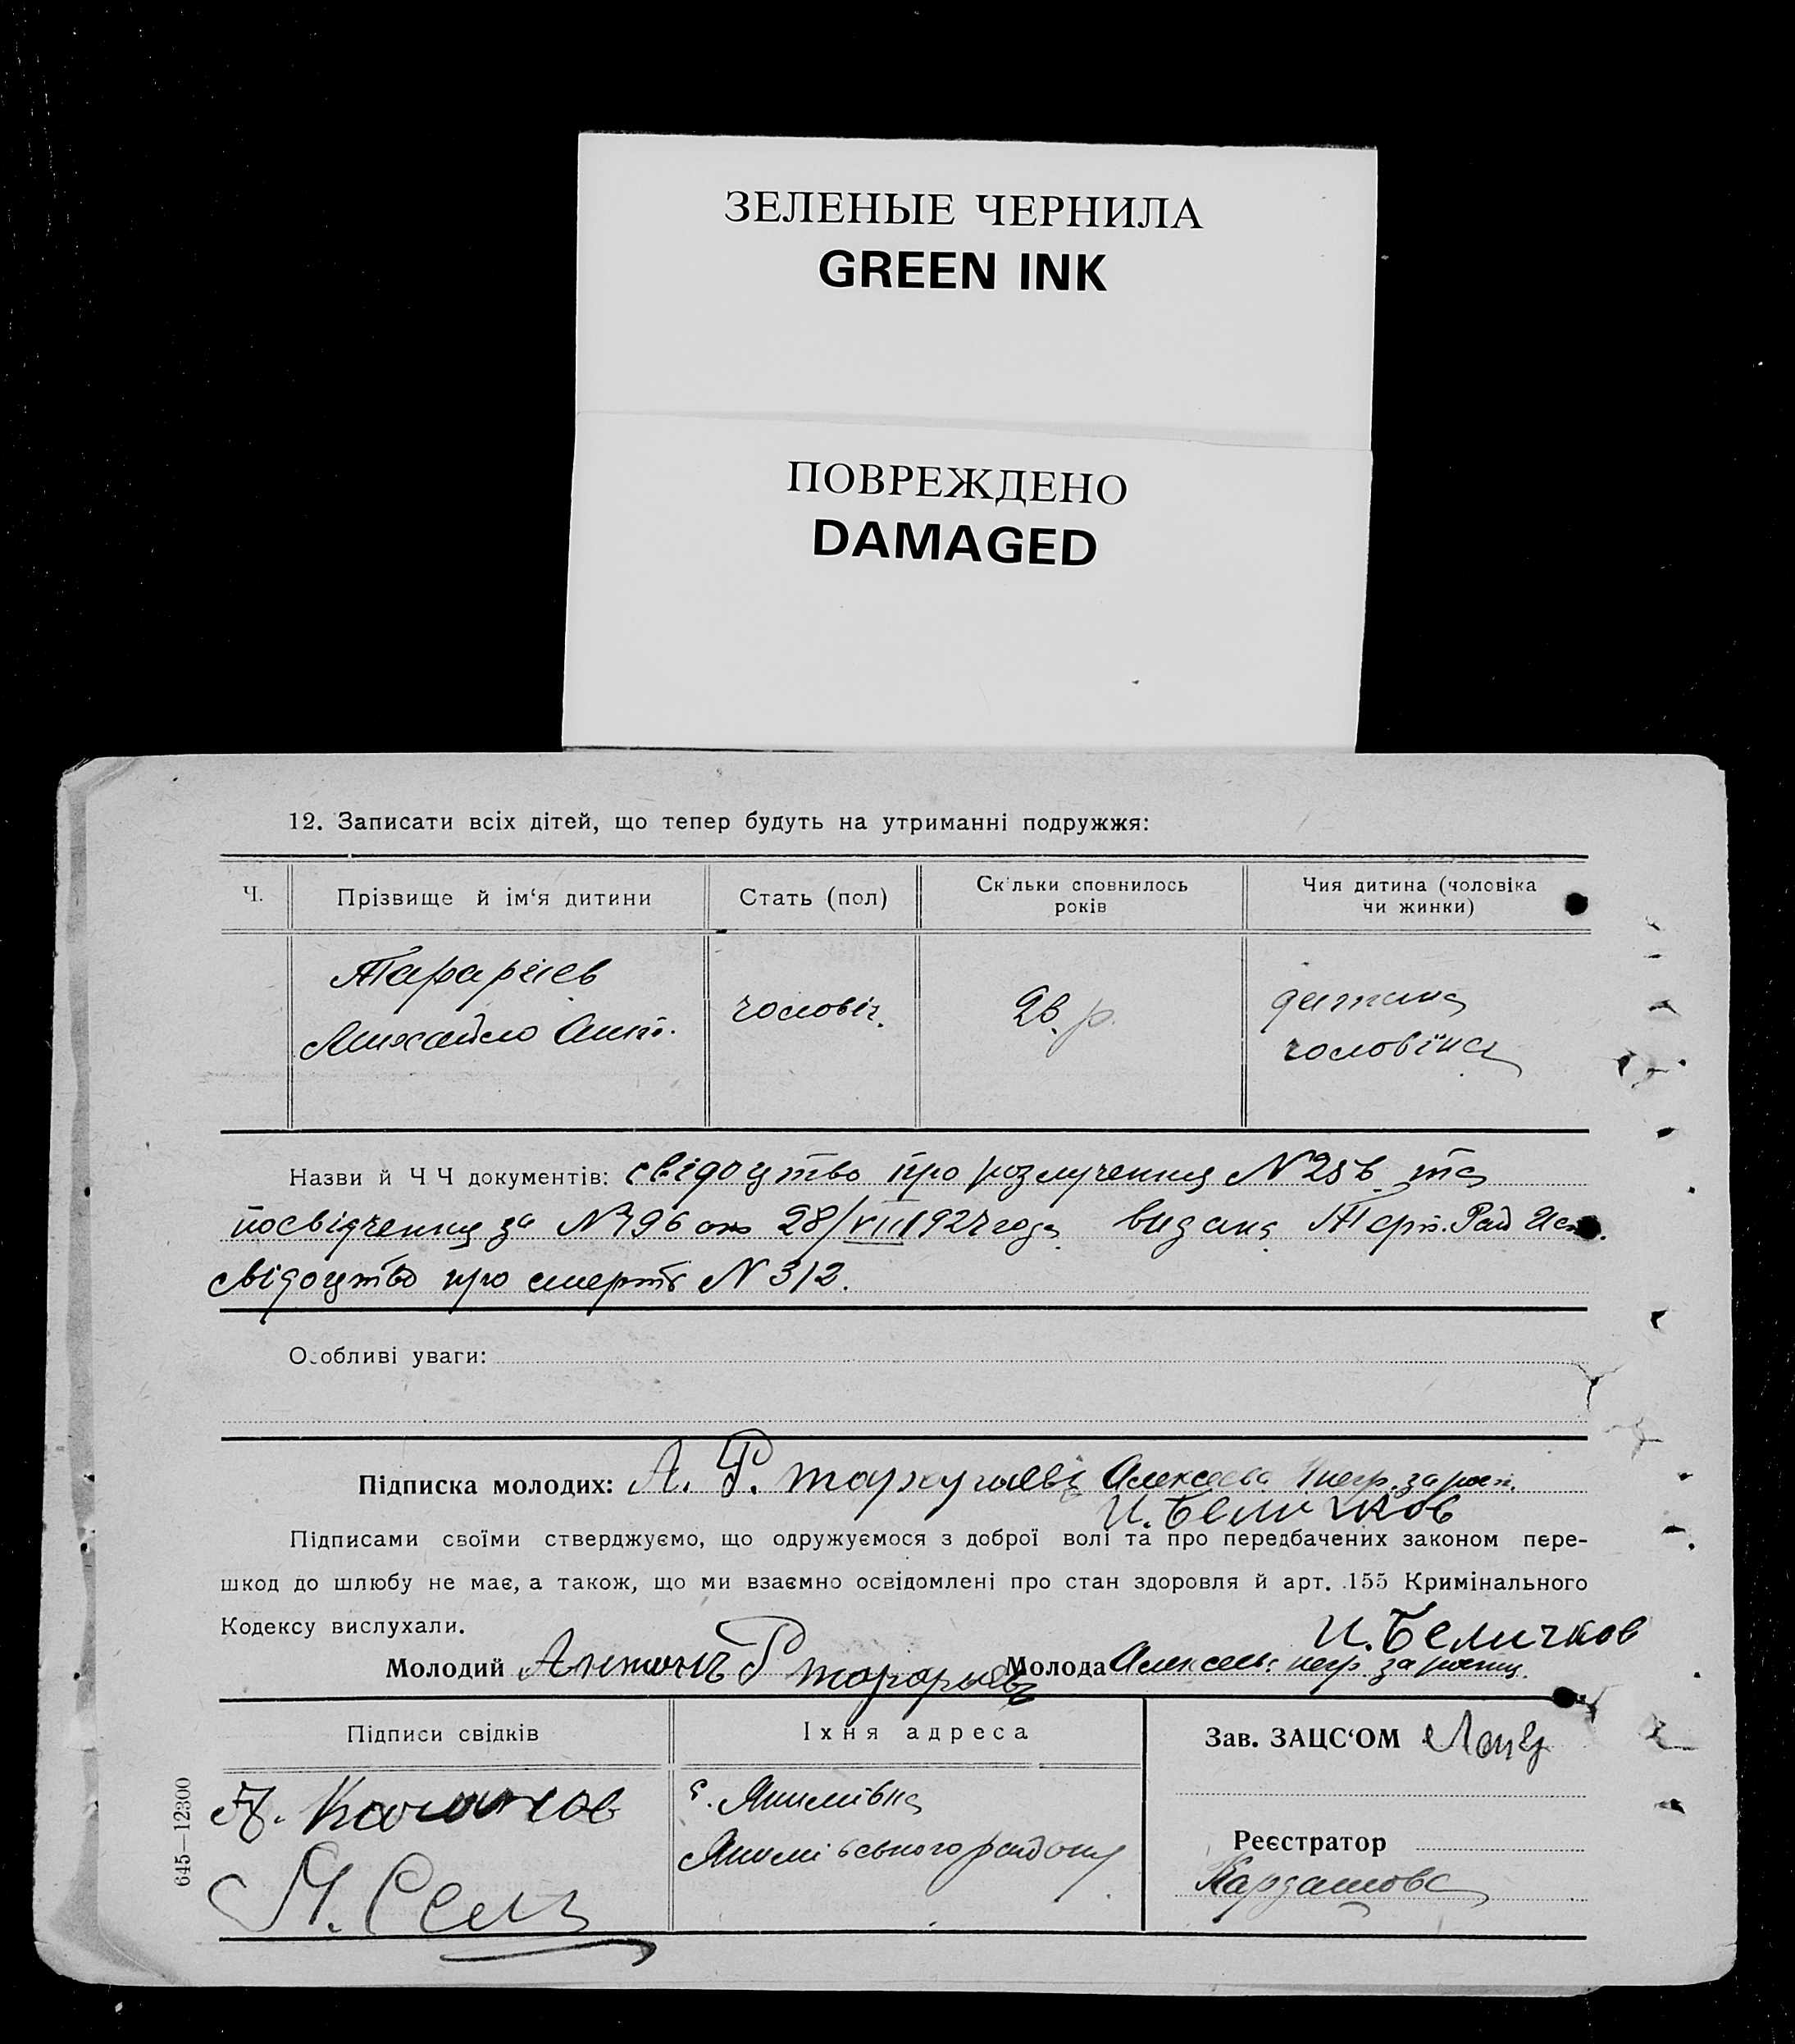 ЗЕЛЕНЫЕ ЧЕРНИЛА
GREEN INK
ПОВРЕЖДЕНО
DAMAGED
12. Записати всіх дітей, що тепер будуть на утриманні подружжя:
Ч. Прізвище й ім‘я дитини Стать (пол) Скільки сповнилось років Чия дитина (чоловіка чи жинки)
Михайло Ант. чоловіч. р. дитина чоловіка
Назви й Ч Ч документів: свідоцтво про розлучення N 28 та
посвідчення за N 196 от 28/VIII 1927 года видана Рай
свідоцтво про смерть N 312.
Особливі уваги:
Підписка молодих: А. Алексеева
И. Беличков
Підписами своїми стверджуємо, що одружуємося з доброї волі та про передбачених законом пере-
шкод до шлюбу не має, а також, що ми взаємно освідомлені про стан здоровля й арт. 155 Кримінального
Кодексу вислухали.
И. Беличков
Молодий Антонъ Молода
Підписи свідків Їхня адреса Зав. ЗАЦС‘ОМ
с. Якимівка
Якимівського району
Реєстратор
Кардашова
645—12300